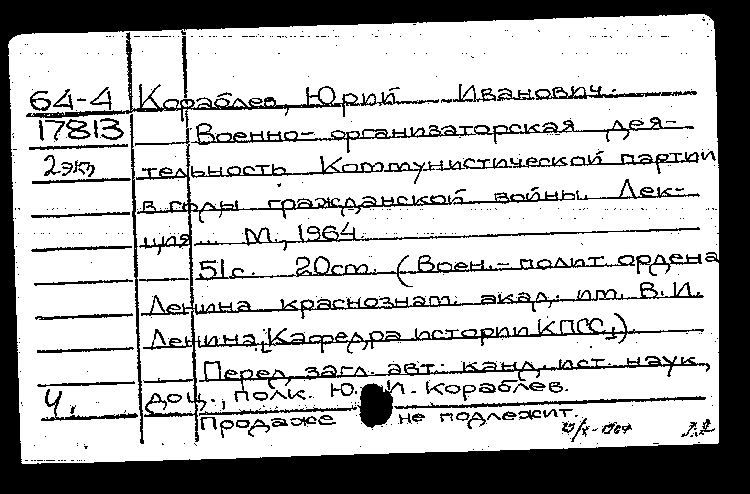 64-4 Кораблев, Юрий Иванович.
17813 Военно-организаторская дея-
2 экз тельность Коммунистической партии
в годы гражданской войны. Лек-
ция... М., 1964.
51 с. 20 cm. (Воен.-полит ордена
Ленина краснознам. акад. им. В. И.
Ленина, [Кафедра истории КПСС]).
Перед загл. авт.: канд. ист. наук,
Ч. доц., полк. Ю. И. Кораблев.
Продаже не подлежит.